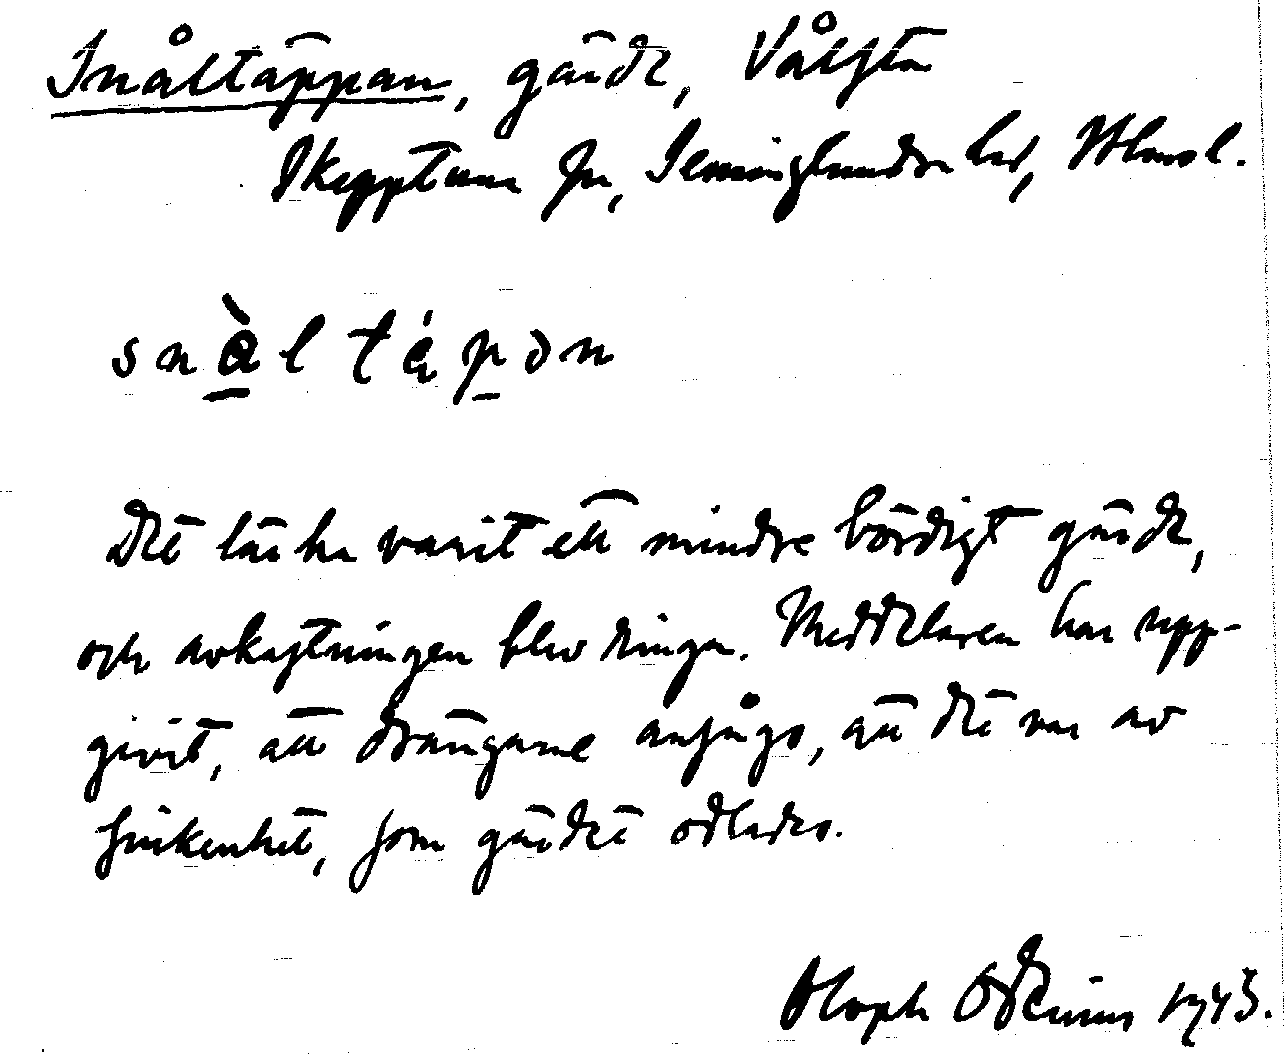 Snåltäppan, gärde, Vålsta
Skepptuna sn, Seminghundra hd, Uppl.
snål täpən
Det lär ha varit ett mindre bördigt gärde,
och avkastningen blev ringa. Meddelaren har upp-
givit, att drängarne ansågo, att det var av
snikenhet, som gärdet odlades.
Oloph Odenius 1943.